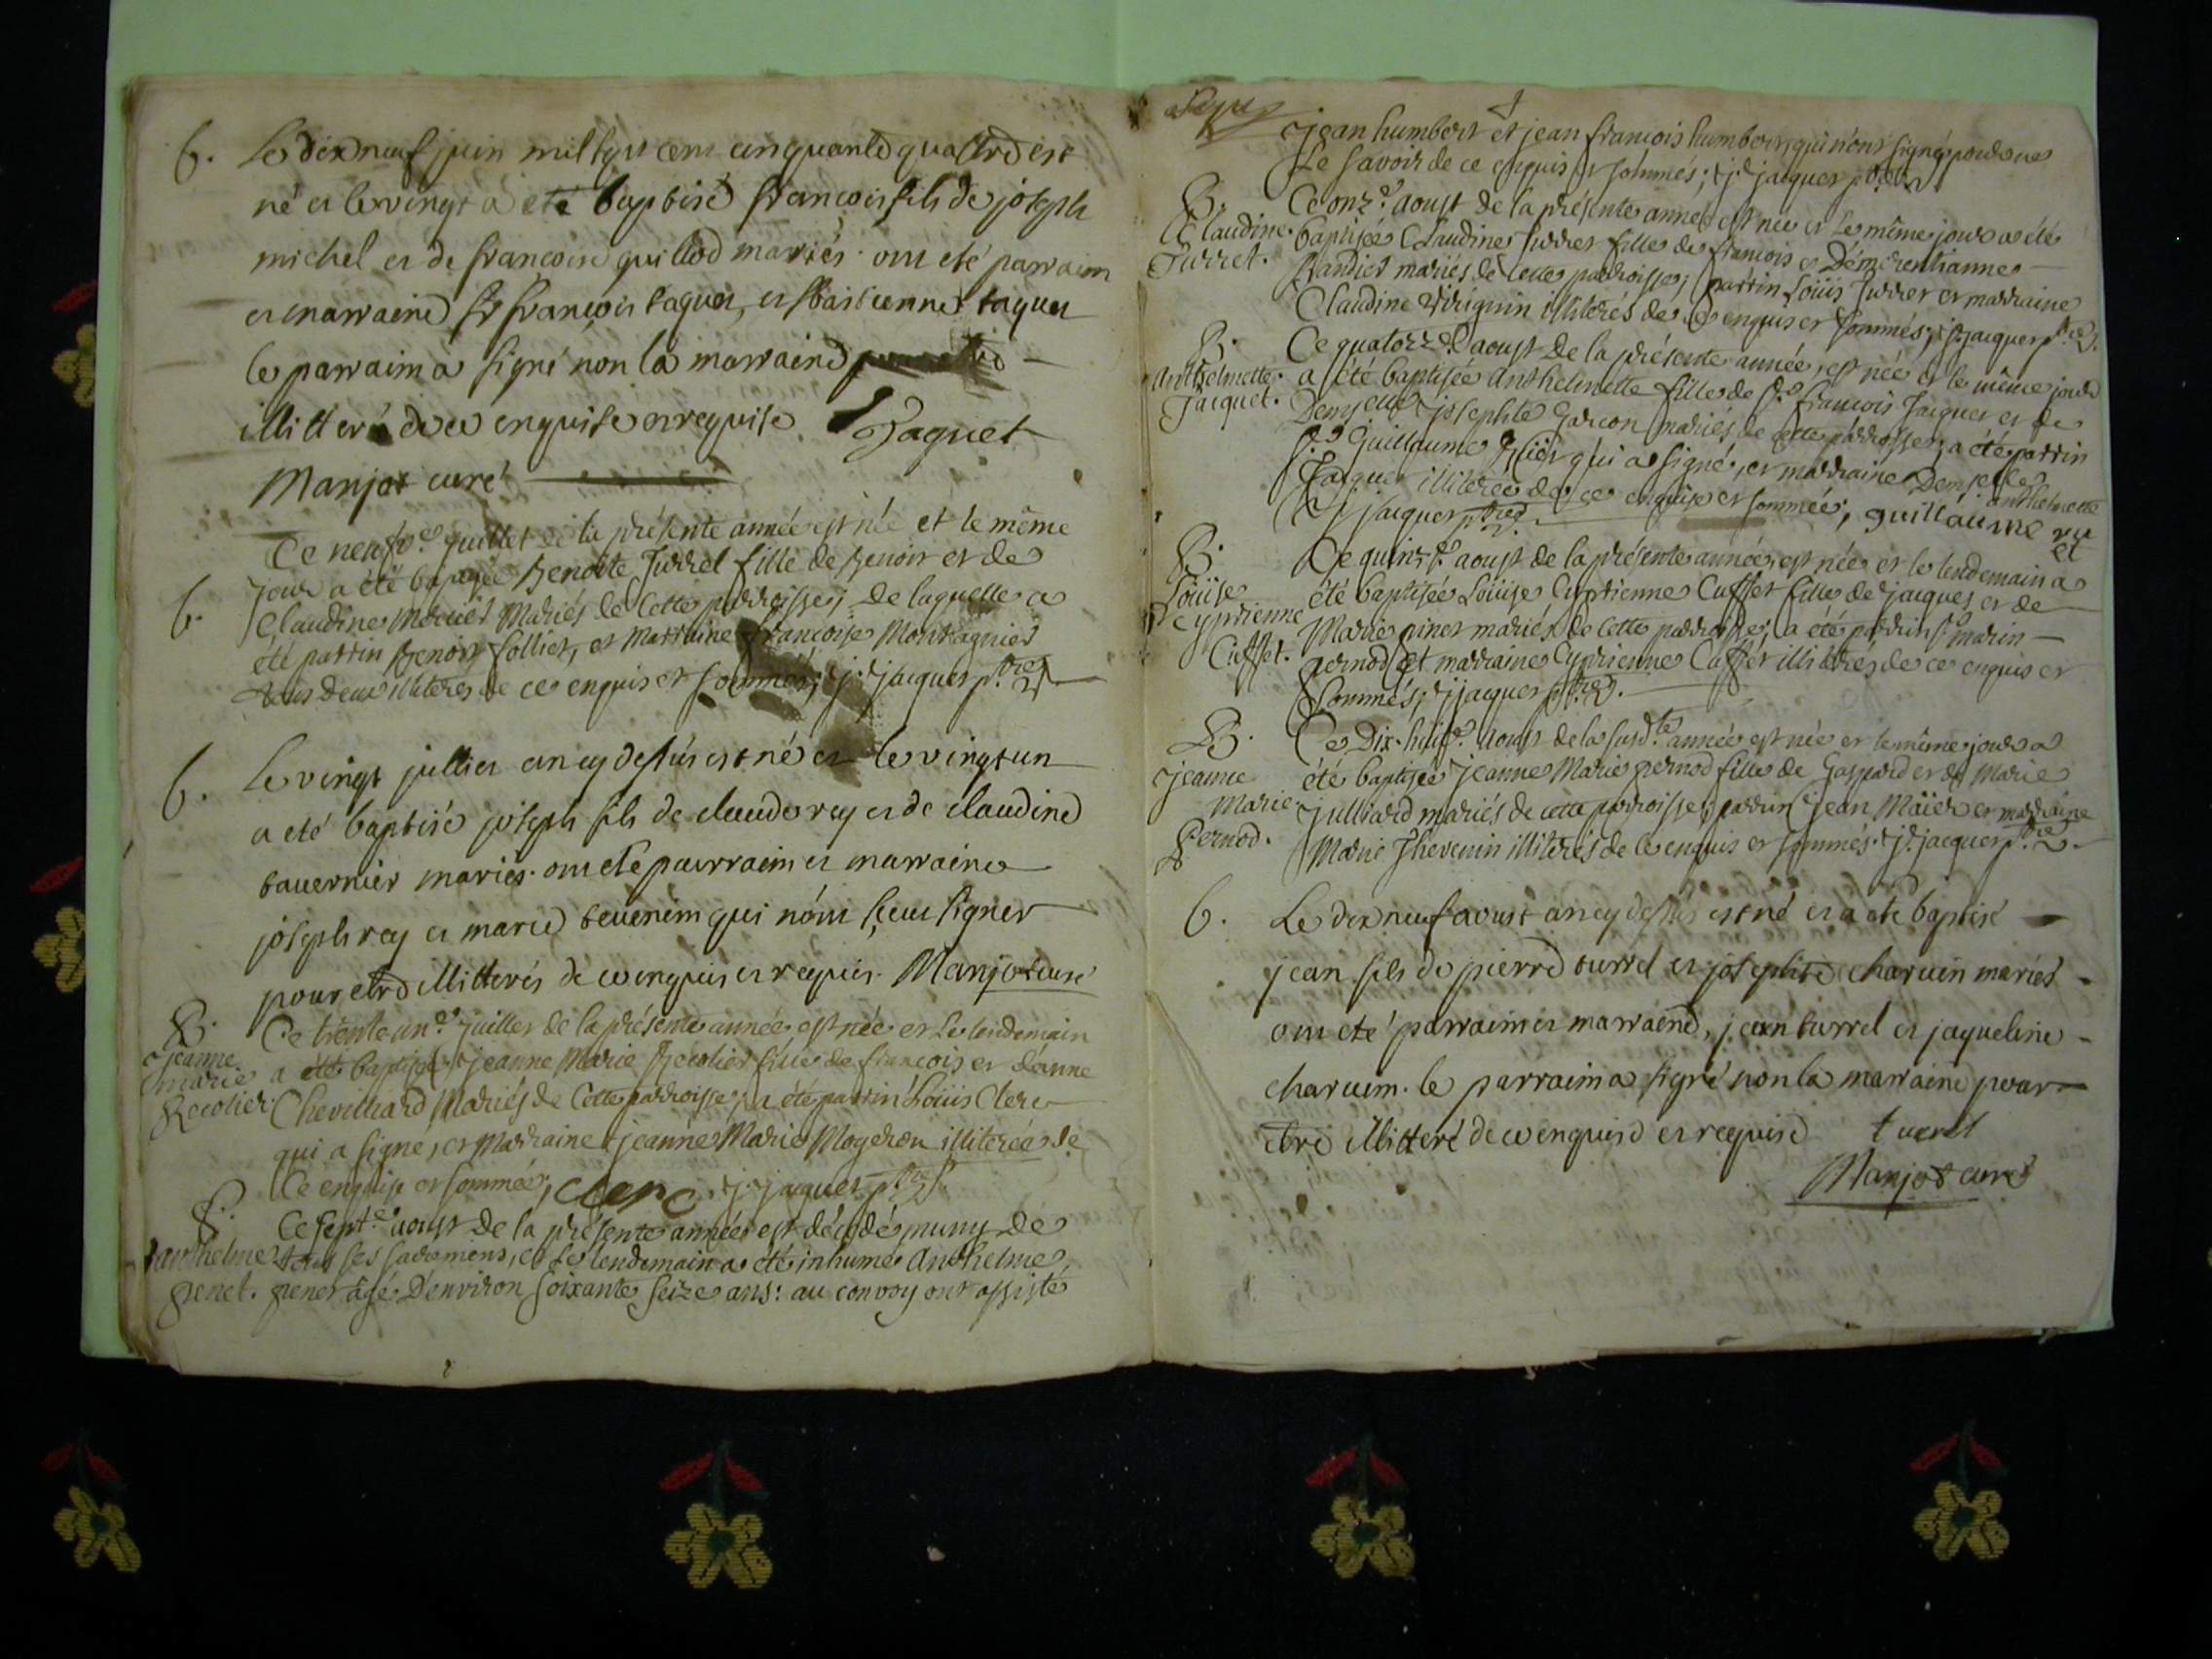 B. Le dix neuf juin mil sept cens cinquante quattre est
né et le vingt a eté baptisé francois fils de joseph
michel et de francoise quillod mariés. ont eté parraim
et marraine Sr francois jaquet, et sbastienne jaquet
le parraim a signé non la marraine
illitteré de ce enquise et requise Jaquet
Manjot curé
Ce neufv.e juillet de la présente année est née et le même
B. jour a été baptisée Benoite Turrel fille de Benoit et de
Claudine Mercier Mariés de Cette parroisse; de laquelle a
été parrin Benoit Folliet, et Marraine francoise Montagnier
tous deux illiterés de ce enquis et sommés; j. jacquet p.tre
B. Le vingt jullier an cy dessus est né et le vingt un
a eté baptisé joseph fils de claude rey et de claudine
tavernier mariés. ont eté parraim et marraine
joseph rey et marie tevenim qui n'ont sceu signer
pour etre illitterés de ce enquis et requis. Manjot curé
B. Ce trente un.e juillet de la présente année est née et Le lendemain
jeanne marie Recolier. a été baptisée jeanne Marie Recolier fille de francois et d'anne
Chevilliard Mariés de Cette parroisse, a été parrin Loüis Clerc
qui a signé, et Marraine jeanne Marie Mogeron illiterée de
Ce enquise et sommée; Clerc j. jacquet p.tre
S. Ce sept.e aoust de la présente année est décédé muny de
anthelme tous ses sacremens, et le lendemain a été inhumé Anthelme
genet. genet agé d'environ soixante seize ans: au convoy ont assisté
jean humbert et jean francois humbert, qui n'ont signé pour ne
Le savoir de ce enquis et sommés; j. jacquet p.tre
B. Ce onz.e aoust de la présente année est née et le même jour a été
Claudine Turret. baptisée Claudine Turret fille de francois et Démerentianne
Brandier mariés de Cette parroisse; parrin Loüis Turret et marraine
Claudine Virignin illiterés de ce enquis et sommés; j. jacquet p.tre
B. Ce quatorz.e aoust de la présente année, est née et le même jour
Anthelmette Jacquet. a été baptisée Anthelmette fille de S.r francois Jacquet et de
Demselle josephte Garcon mariés de cette parroisse; a été parrin
S.r Guillaume qui a signé, et marraine Demselle anthelmette
Jacquet illiterée de ce enquise et sommée, guillaume
j. jacquet p.tre
B. Ce quinz.e aoust de la présente année, est née et le lendemain a
Loüise Cyprienne Cuffet. été baptisée Loüise Cyprienne Cuffet fille de jacques et de
Marie pinet mariés de Cette parroisse; a été parrin S.r marin
pernod et marraine Cyprienne Cuffet illiterés de ce enquis et
sommés; j. jacquet p.tre
B. Ce Dix-huit.e aoust de la susd.te année est née et le même jour a
jeanne Marie Pernod. été baptisée jeanne Marie pernod fille de Gaspard et de Marie
julliard mariés de cette parroisse; parrin jean Maïer et marraine
Marie Thevenin illiterés de Ce enquis et sommés. j. jacquet p.tre
B. Le dix neuf aoust an cy dessus est né et a eté baptisé
jean fils de pierre turrel et josephte charvin mariés
ont eté parraim et marraine, jean turrel et jaqueline
charvim. le parraim a signé non la marraine pour
etre illitteré de ce enquise et requise turrel
Manjot curé